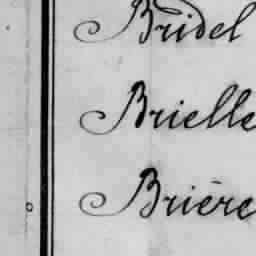 Bridel
Brielle
Brière